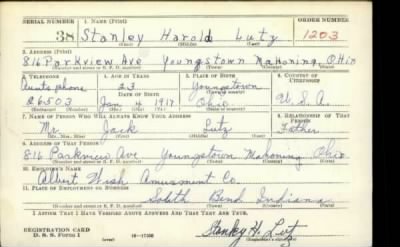 SERIAL NUMBER 1. NAME (Print) ORDER NUMBER
38 Stanley Harold Lutz 1203
(First) (Middle) (Last)
2. ADDRESS (Print)
816 Parkview Ave Youngstown Mahoning, Ohio
(Number and street or R. F. D. number) (Town) (County) (State)
3. TELEPHONE 4. AGE IN YEARS 5. PLACE OF BIRTH 6. COUNTRY OF CITIZENSHIP
Aunts phone 23 Youngstown
DATE OF BIRTH
26503 Jan 4 1917 Ohio U.S.A.
(Exchange) (Number) (Mo.) (Day) (Yr.) (State or country)
7. NAME OF PERSON WHO WILL ALWAYS KNOW YOUR ADDRESS 8. RELATIONSHIP OF THAT PERSON
Mr. Jack Lutz Father
(Mr., Mrs., Miss) (First) (Middle) (Last)
9. ADDRESS OF THAT PERSON
816 Parkview Ave Youngstown Mahoning Ohio
(Number and street or R. F. D. number) (Town) (County) (State)
10. EMPLOYER'S NAME
Albert Amusment Co.
11. PLACE OF EMPLOYMENT OR BUSINESS
South Bend Indiana
(Number and street or R. F. D. number) (Town) (County) (State)
I AFFIRM THAT I HAVE VERIFIED ABOVE ANSWERS AND THAT THEY ARE TRUE.
REGISTRATION CARD
D. S. S. FORM 1 (over) Stanley H. Lutz
(Registrant's signature)